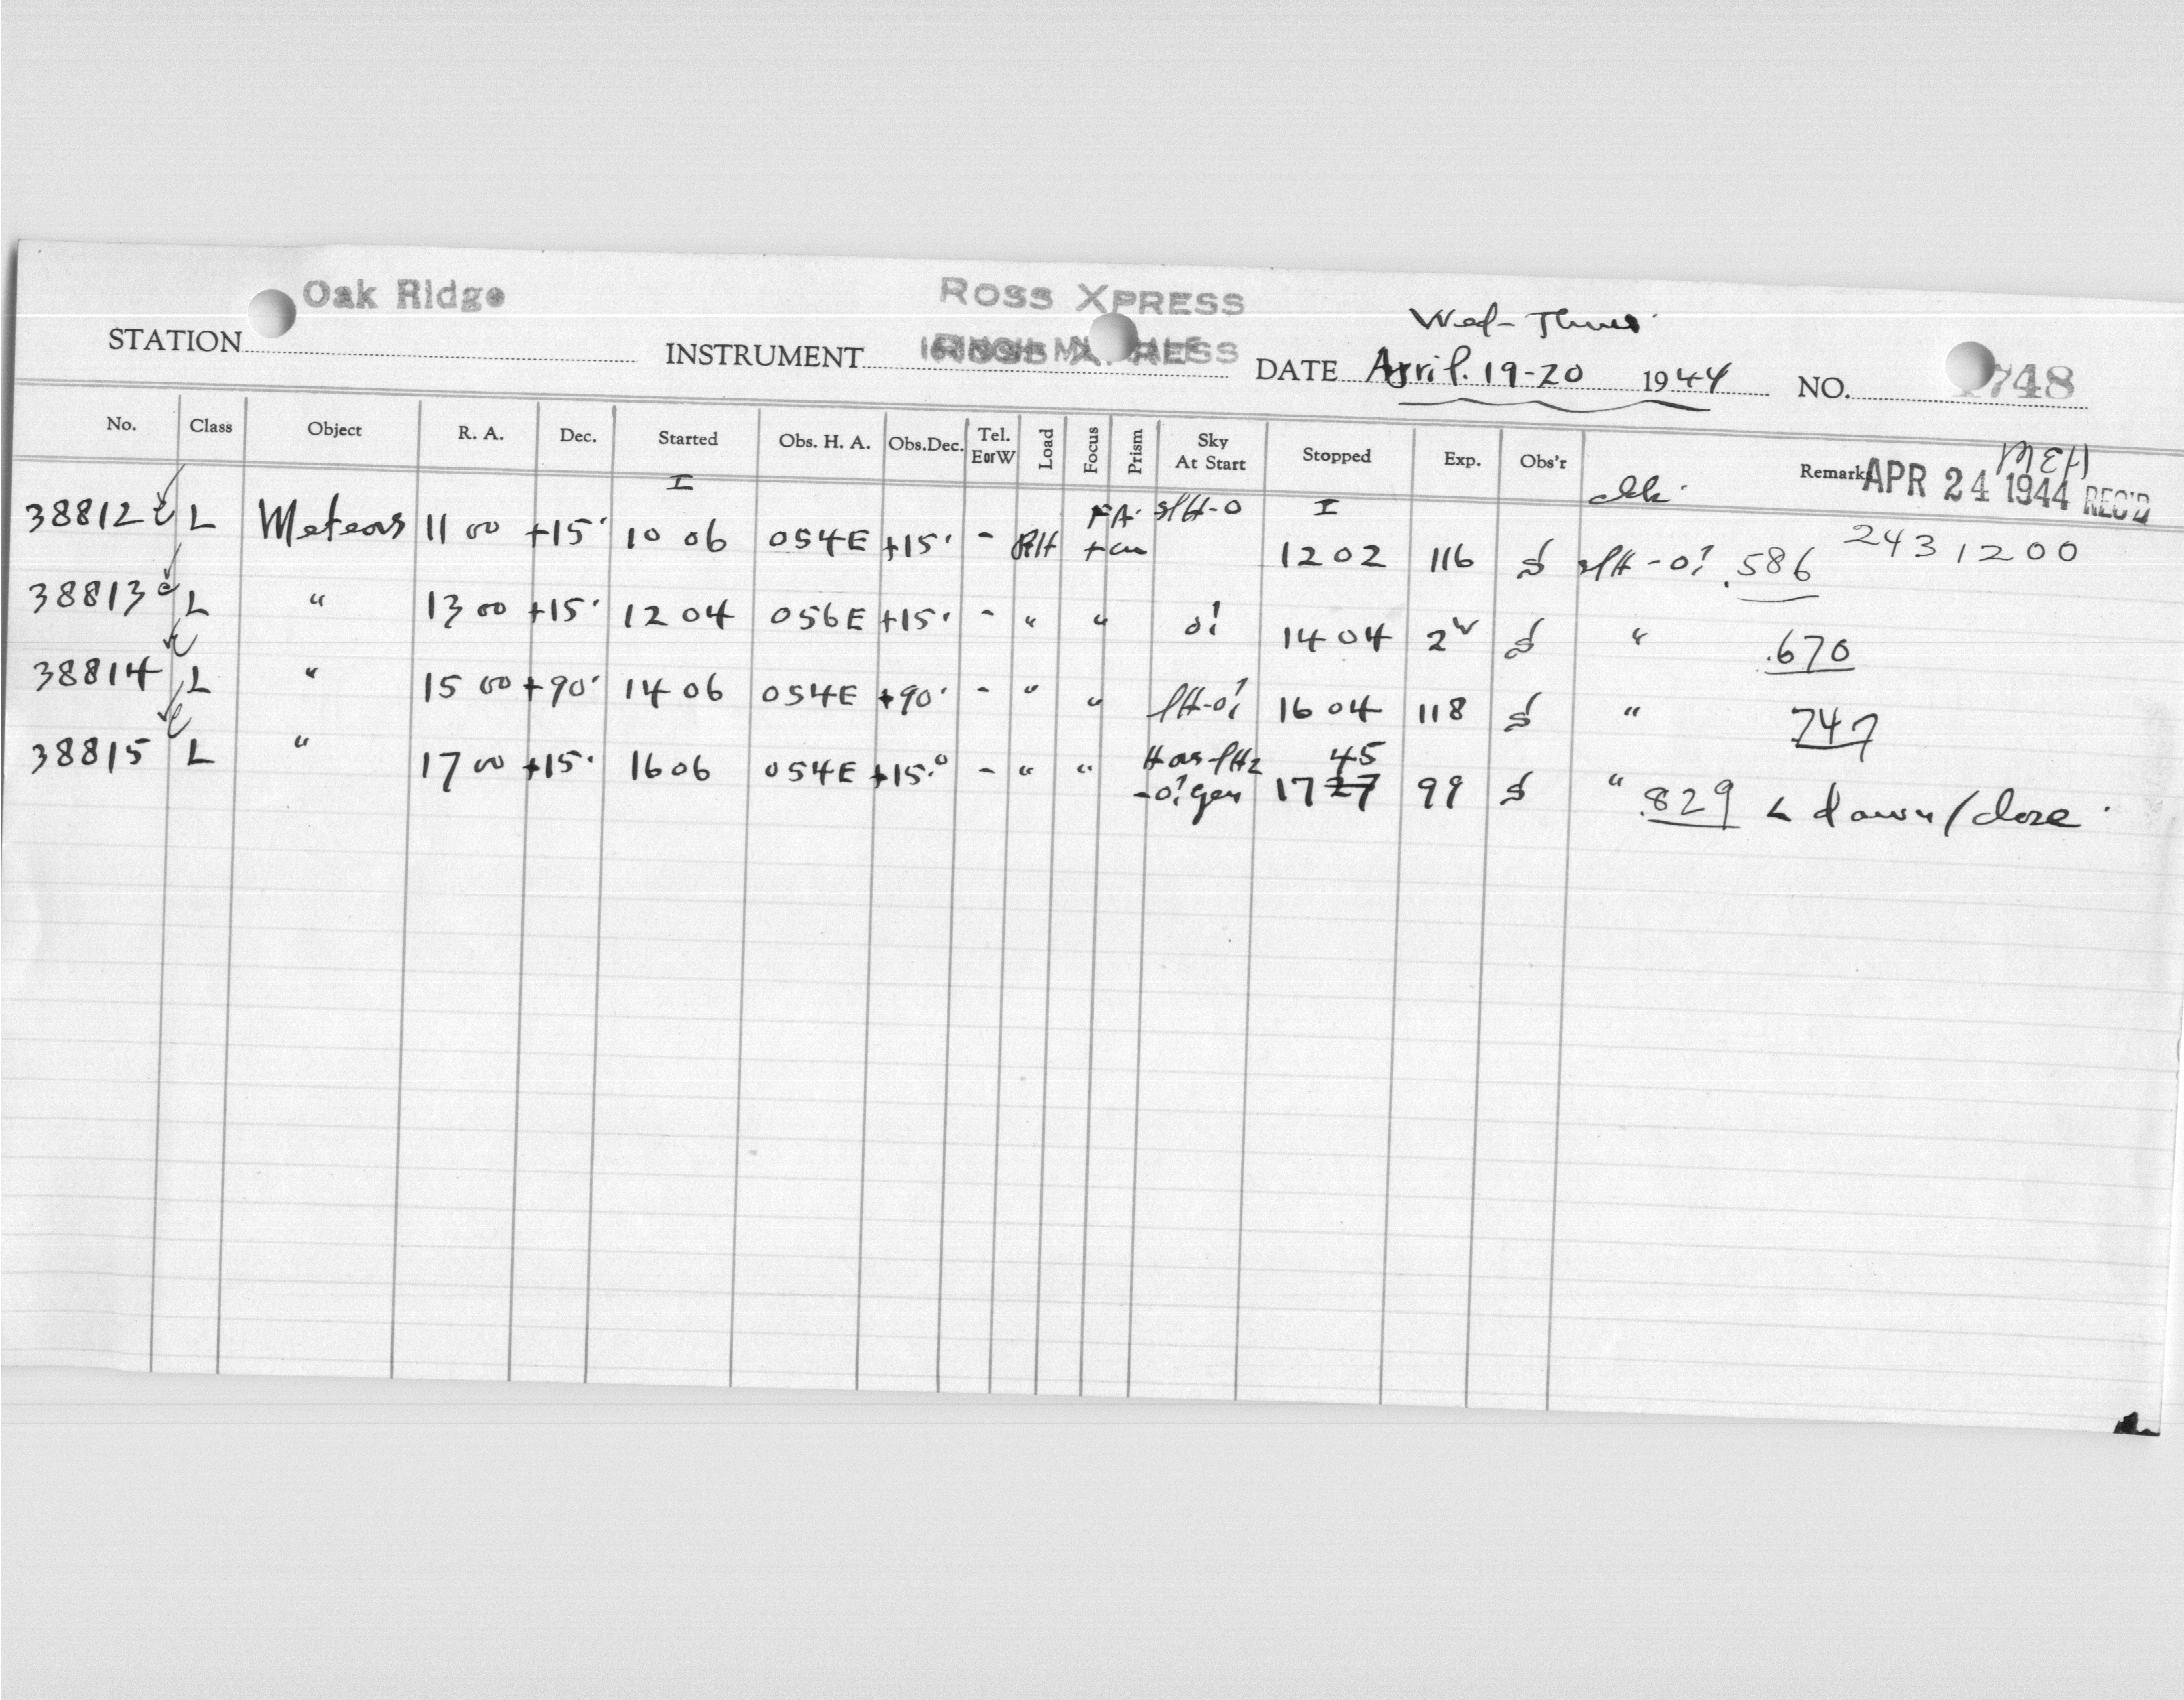 Oak Ridge ROSS XPRESS
Wed-Thurs.
STATION INSTRUMENT DATE April. 19-20 1944 NO. 748
No. Class Object R. A. Dec. Started Obs. H. A. Obs.Dec. Tel. EorW Load Focus Prism Sky At Start Stopped Exp. Obs'r Remarks
MEH
APR 24 1944 REC'D
I I
38812 L Meteors 11 00 +15° 10 06 054E +15° - RH FA slH-0 1202 116 S slH-0? .586 2431200
38813 L " 13 00 +15° 12 04 056E +15° - " " 0? 1404 2 S " .670
38814 L " 15 00 +90° 14 06 054E +90° - " " lH-0? 16 04 118 S " 747
38815 L " 17 00 +15° 1606 054E +15° - " " 17 27 45 99 S " .829 dawn/close.